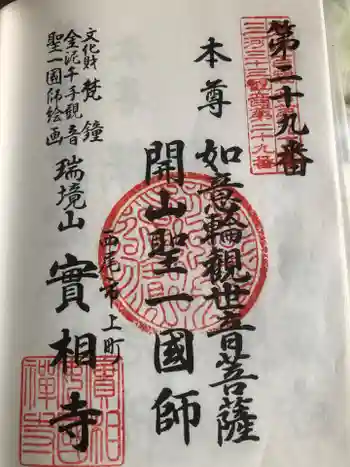 第二十九番
三河三十三観音第二十九番
本尊 如意輪觀世音菩薩
開山聖一國師
西尾市上町
文化財 梵鐘
金泥千手觀音
聖一國師絵画
瑞境山 實相寺
實相禅寺